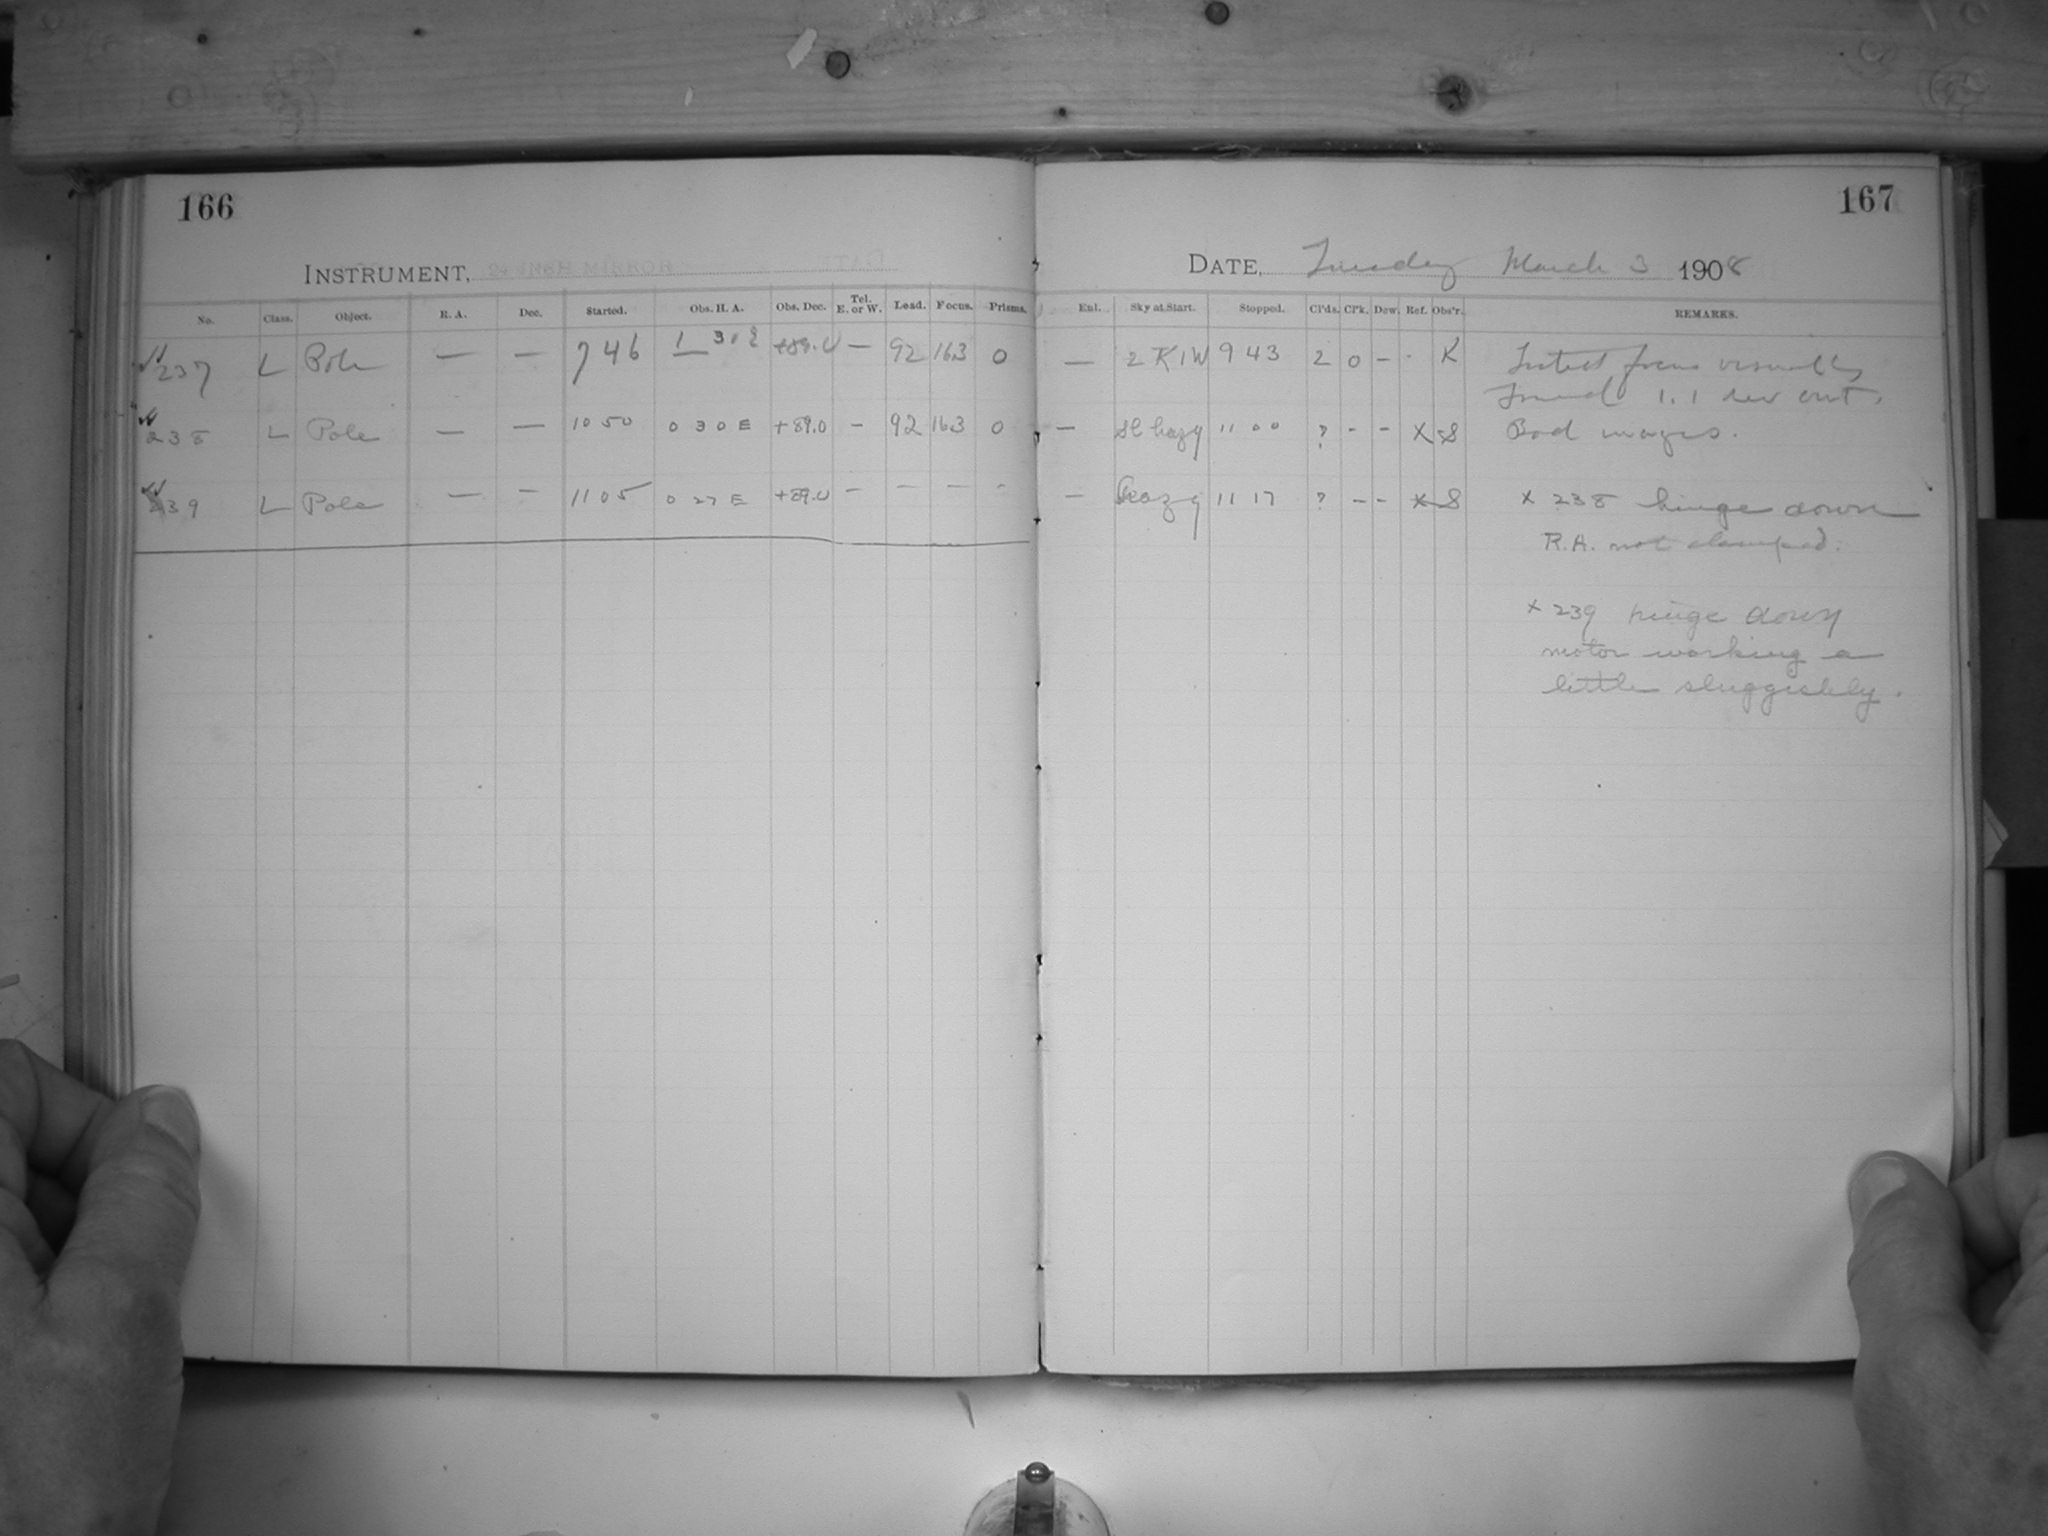 166
INSTRUMENT,
No. Class. Object. R. A. Dec. Started. Obs. H. A. Obs. Dec. Tel. E. or W. Load. Focus. Prisms.
237 L Pole — — 7 46 1 30 +89.0 — 92 16.3 0
238 L Pole — — 10 50 0 30 E +89.0 — 92 16.3 0
239 L Pole — — 11 05 0 27 E +89.0 — — — -
167
DATE, Tuesday March 3 1908
Enl. Sky at Start. Stopped. Cl'ds. Cl'k. Dew. Ref. Obs'r. REMARKS.
— 2 K 1 W 9 43 2 0 - · K Tested focus visually
found 1.1 rev out.
— Sl hazy 11 00 ? - - X S Bad images.
— Hazy 11 17 ? - - X S x 238 hinge down
R.A. not clamped.
x 239 hinge down
motor working a
little sluggishly.